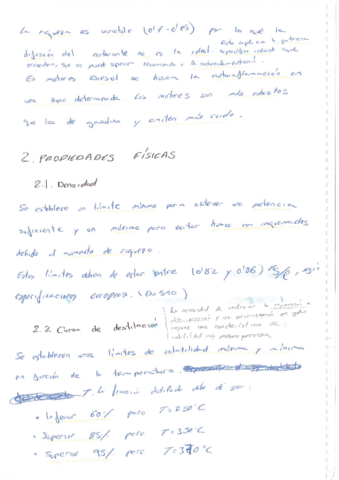 La riqueza es variable (0'7-0'85) por lo que la
difusión del carburante no es la ideal.
En motores Diesel se busca la autoinflamación en
una zona determinada. Los motores son más robustos
que los de gasolina y emiten más ruido.
2. PROPIEDADES FÍSICAS
2.1. Densidad
Se establece un límite mínimo para obtener una potencia
suficiente y un máximo para evitar humos por inquemados
debido al aumento de riqueza.
Estos límites deben de estar entre (0'82 y 0'86) según
especificaciones europeas.
2.2. Curva de destilación
Se establecen unos límites de volatilidad máxima y mínima
en función de la temperatura.
T. La fracción destilada debe de ser:
• Inferior 60% para T=250°C
• Superior 85% para T=350°C
• Superior 95% para T=370°C